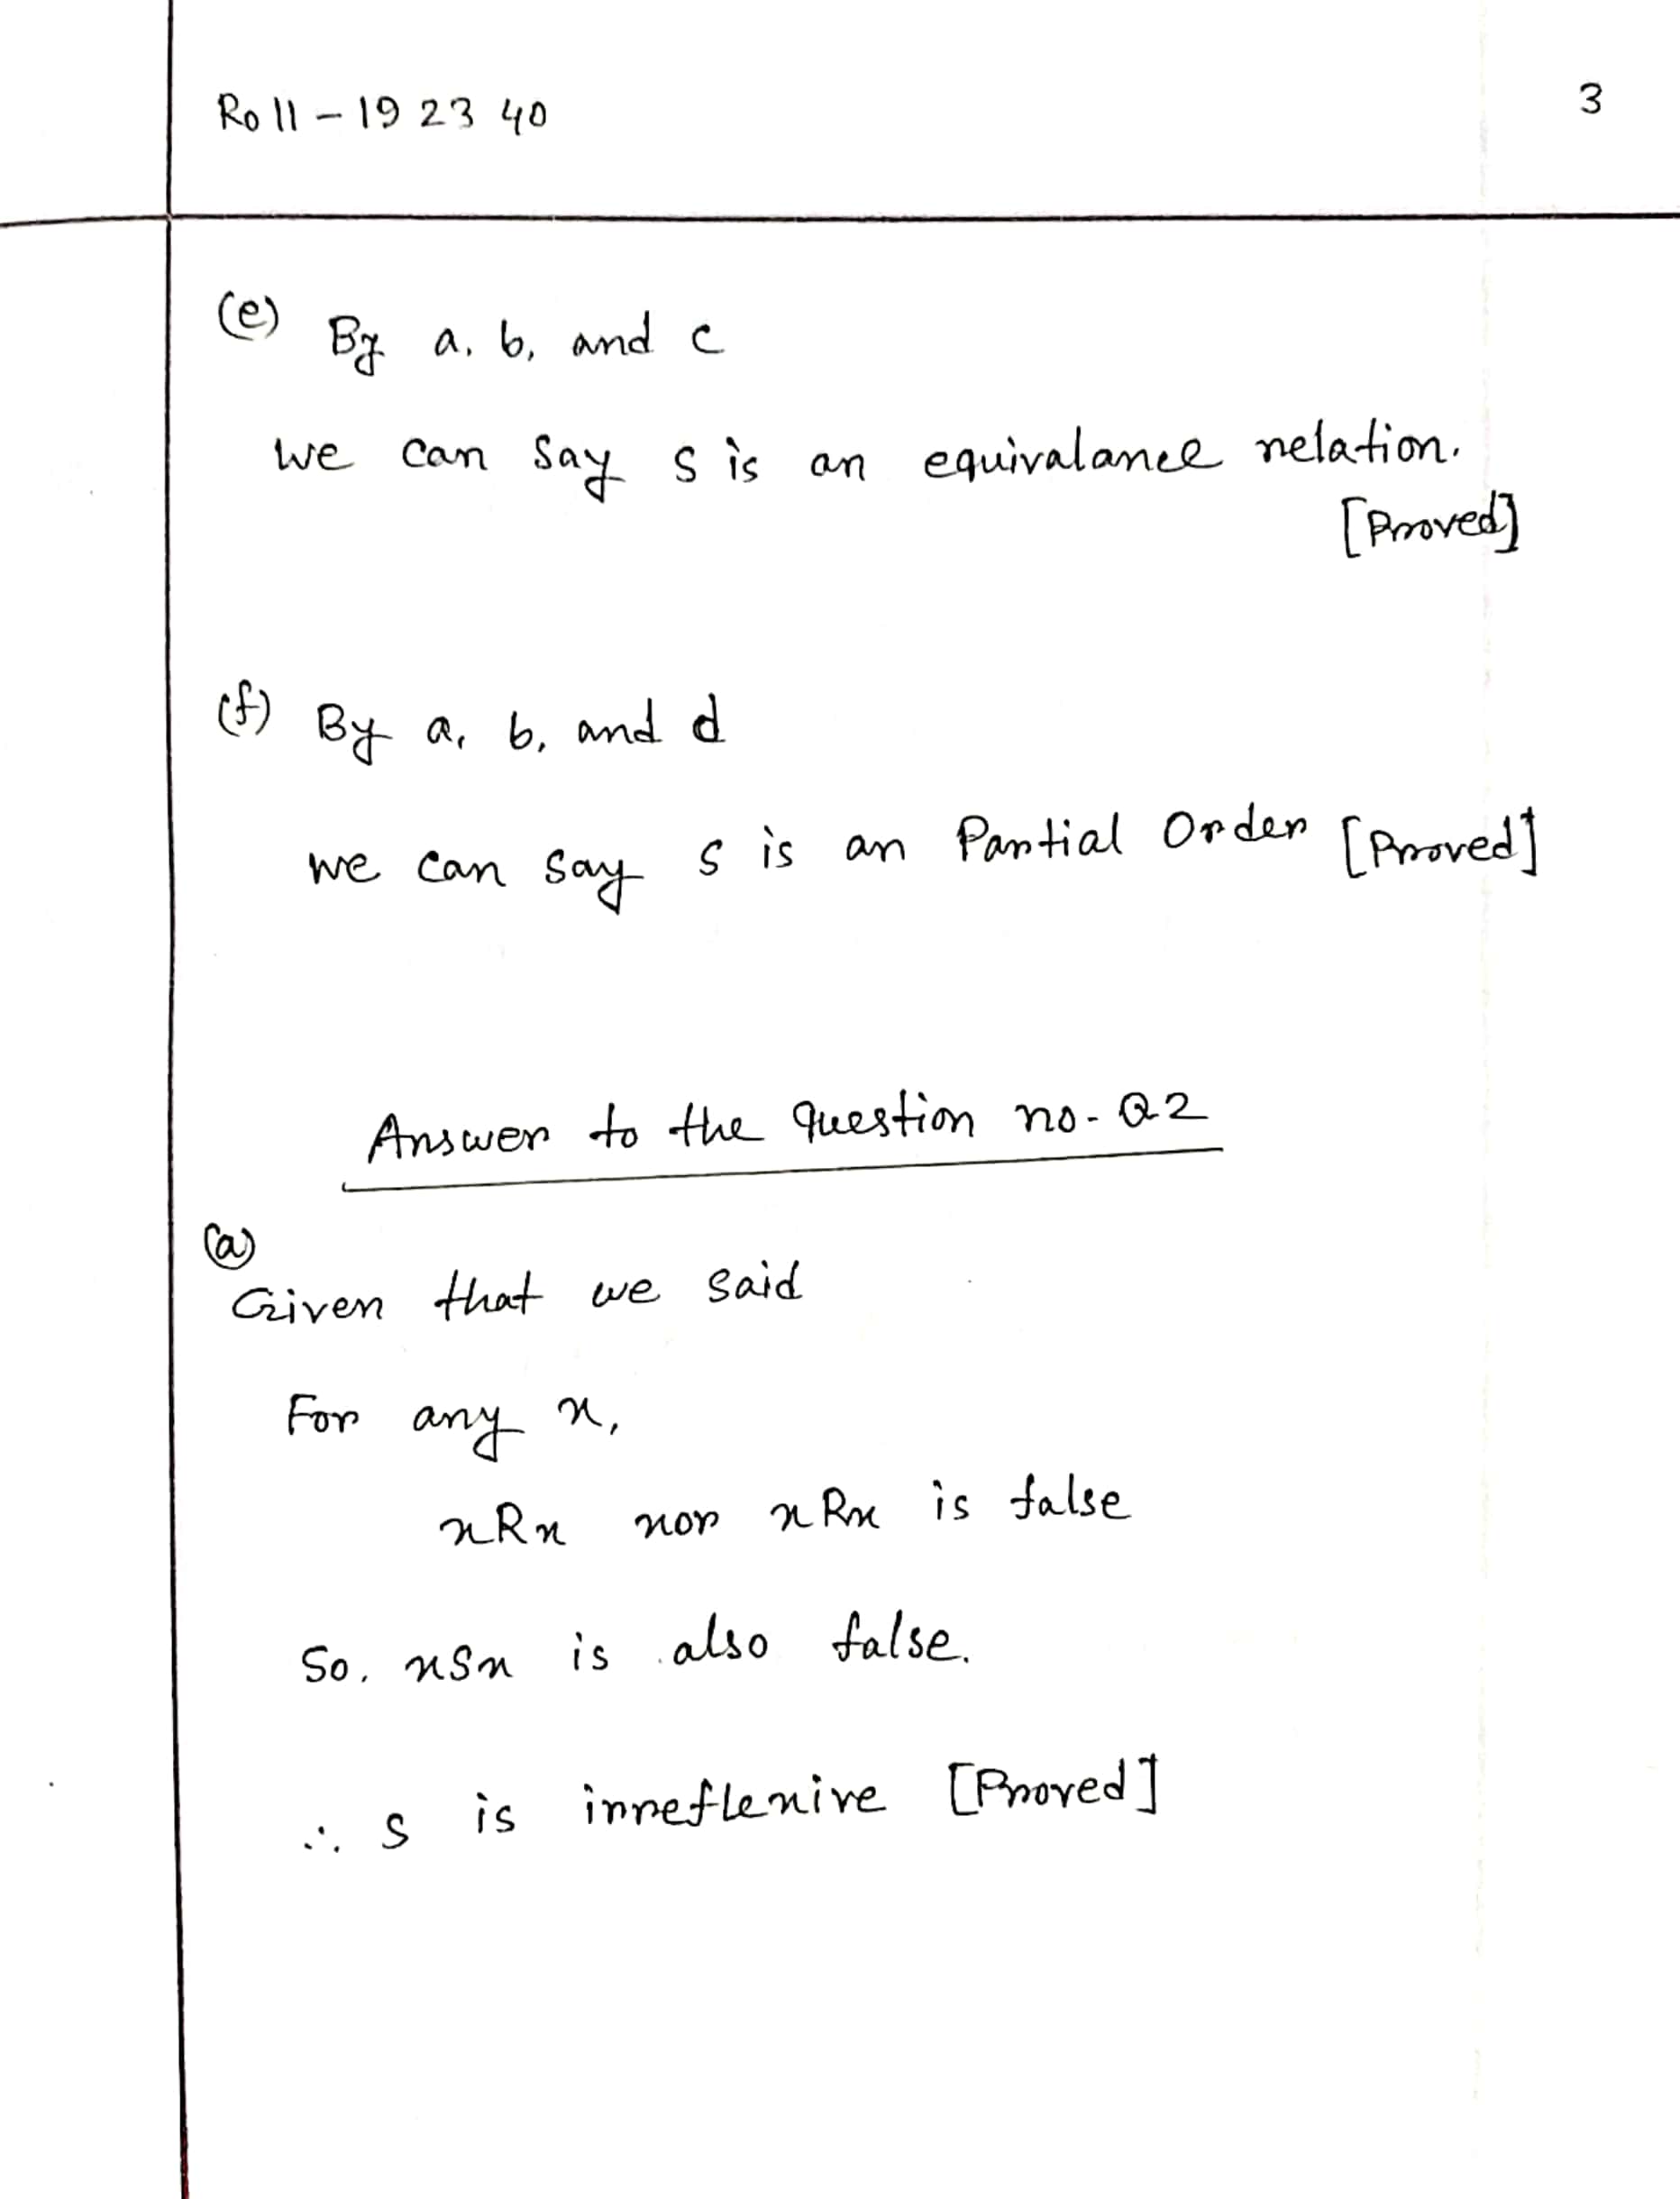 Roll - 192340
3
(e) By a, b, and c
we can say S is an equivalance relation.
[Proved]
(f) By a, b, and d
we can say S is an Partial Order [Proved]
Answer to the question no - Q2
(a)
Given that we said
For any x,
xRx nor xRx is false
So, xSx is also false.
∴ S is irreflexive [Proved]